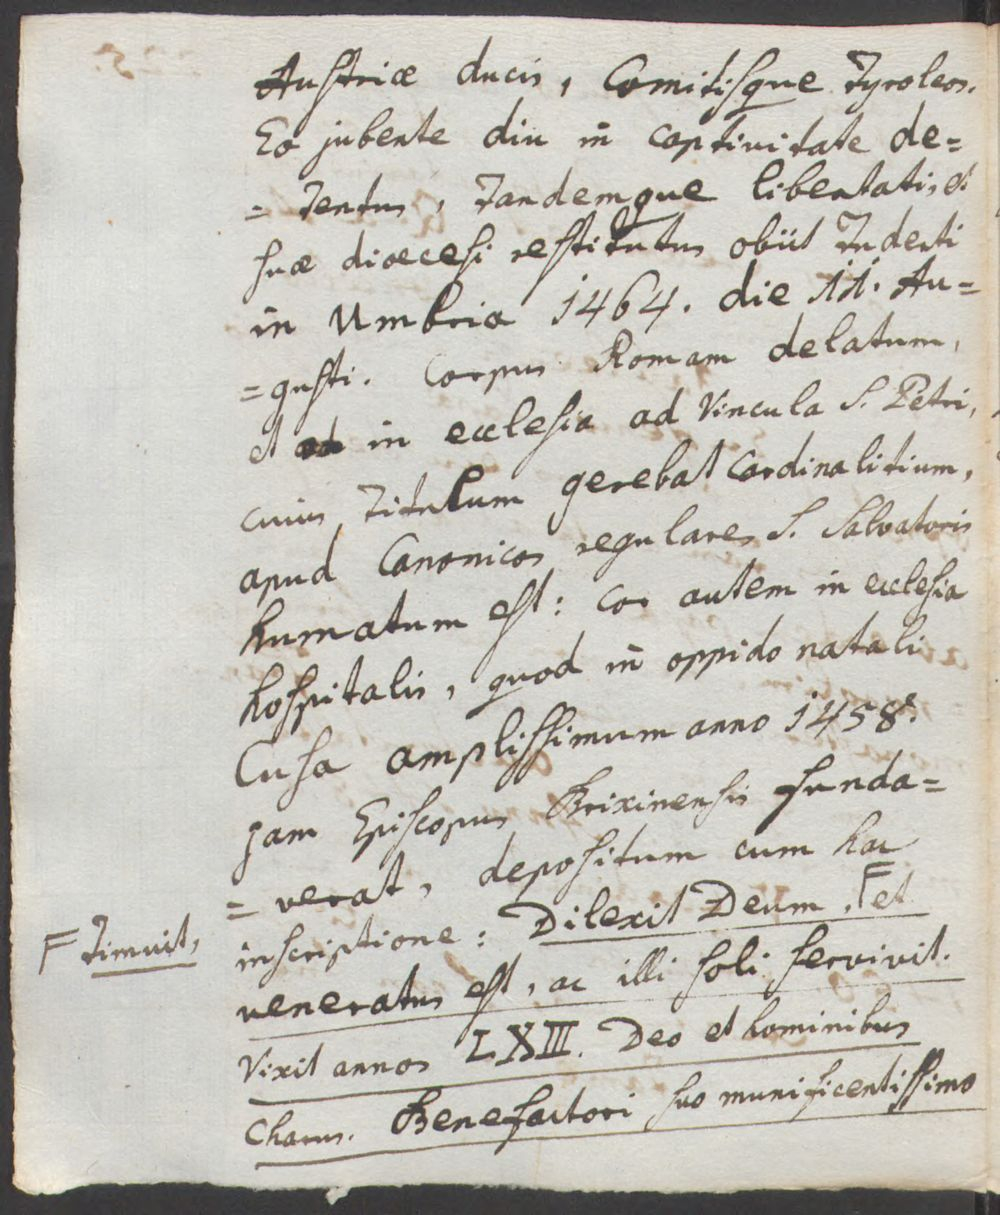 Austriæ ducis, Comitisque Tyrolens.
Eo jubente diu in captivitate de=
=tentus, tandemque libertati, et
suæ diœcesi restitutus obiit Tuderti
in Umbria 1464. die 11. Au=
=gusti. Corpus Romam delatum,
et in ecclesia ad Vincula S. Petri,
cuius titulum gerebat Cardinalitium,
apud Canonicos regulares S. Salvatoris
humatum est: Cor autem in ecclesia
hospitalis, quod in oppido natali
Cusa amplissimum anno 1458.
jam Episcopus Brixinensis funda=
=verat, depositum cum hac
inscriptione: Dilexit Deum, F et
F timuit,
veneratus est, ac illi soli servivit.
Vixit annos LXIII. Deo et hominibus
Charus. Benefactori suo munificentissimo